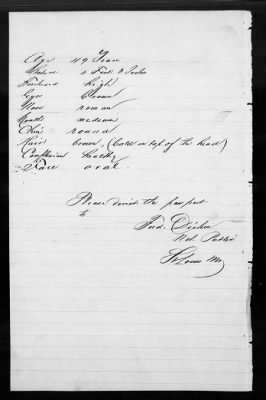 Age 49 Years
Stature 5 Feet 8 Inches
Forehead high
Eyes Brown
Nose roman
Mouth medium
Chin round
Hair brown, (bald on top of the head)
Complexion healthy
Face oval
Please remit the passport
to
Ferd.
Not. Public
St Louis Mo